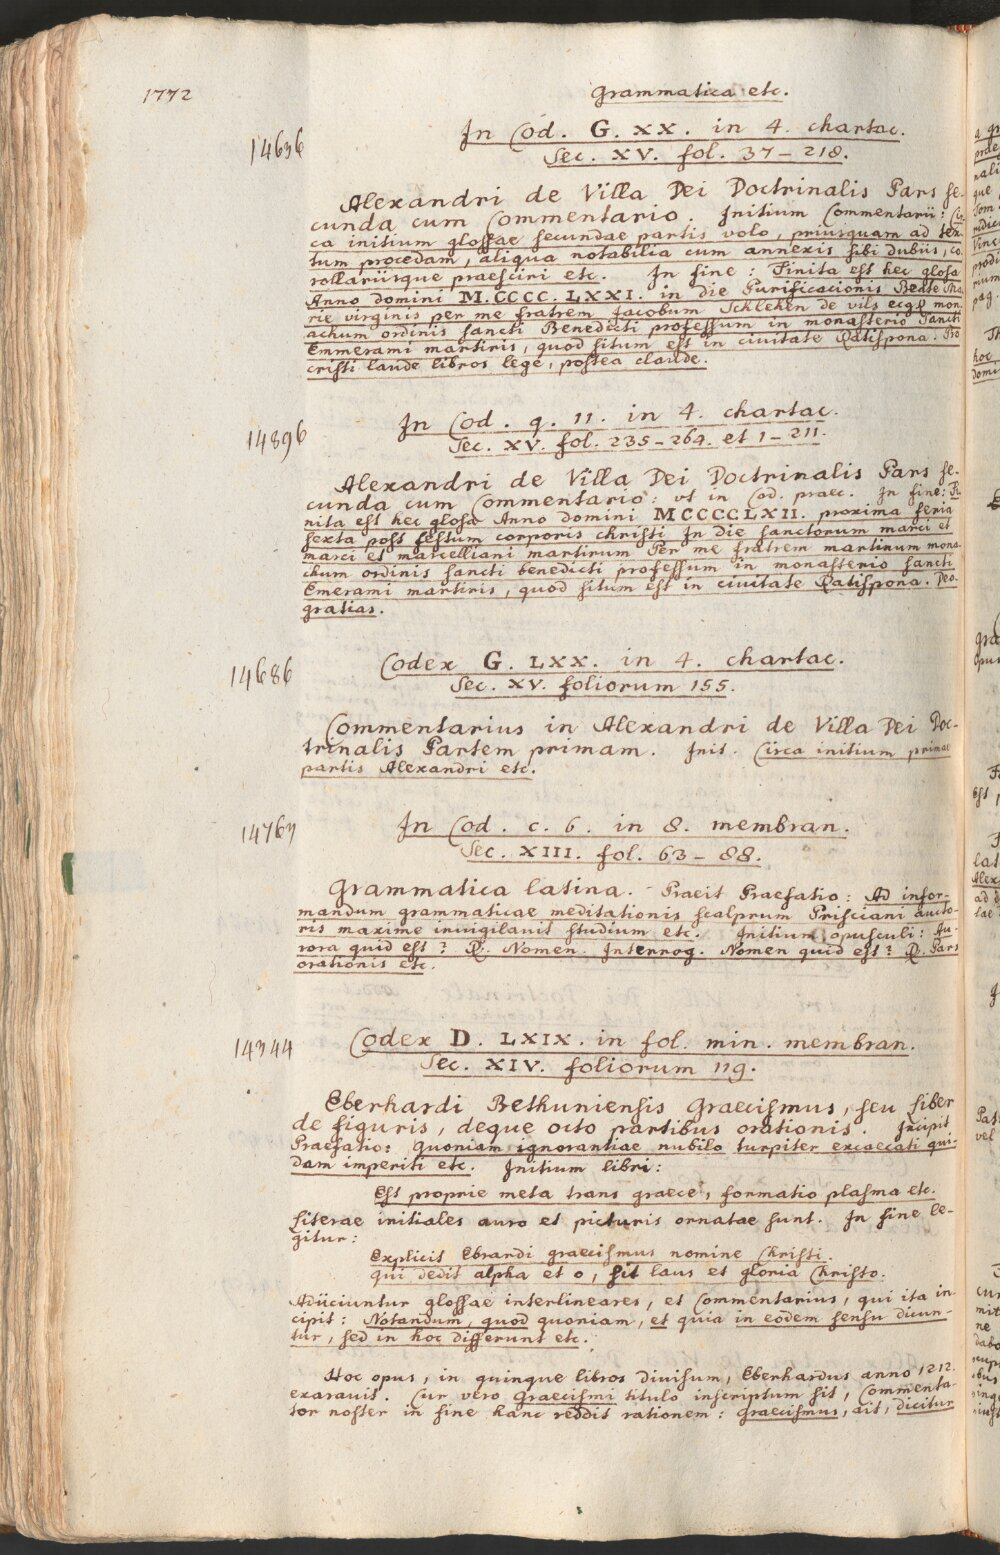 1772
Grammatica etc.
14636
In Cod. G. XX. in 4. chartac.
Sec. XV. fol. 37 - 218.
Alexandri de Villa Dei Doctrinalis Pars se-
cunda cum Commentario. Initium Commentarii: Cir-
ca initium glossae secundae partis volo, priusquam ad tex-
tum procedam, aliqua notabilia cum annexis sibi dubiis, co-
rollariisque praesciri etc. In fine: Finita est hec glosa
Anno domini M.CCCC.LXXI. in die Purificacionis Beate Ma-
rie virginis per me fratrem Jacobum Schlehen de vils mon-
achum ordinis sancti Benedicti professum in monasterio Sancti
Emmerami martiris, quod situm est in civitate Ratispona. Pro
cristi laude libros lege, postea claude.
14896
In Cod. q. 11. in 4. chartac.
Sec. XV. fol. 235 - 264. et 1 - 211.
Alexandri de Villa Dei Doctrinalis Pars se-
cunda cum Commentario: ut in Cod. praec. In fine: Fi-
nita est hec glosa Anno domini MCCCCLXII. proxima feria
sexta post festum corporis christi In die sanctorum marci et
marci et marcelliani martirum Per me fratrem martinum mona-
chum ordinis sancti benedicti professum in monasterio sancti
Emerami martiris, quod situm est in civitate Ratispona. Deo
gratias.
14686
Codex G. LXX. in 4. chartac.
Sec. XV. foliorum 155.
Commentarius in Alexandri de Villa Dei Doc-
trinalis Partem primam. Init. Circa initium primae
partis Alexandri etc.
14763
In Cod. c. 6. in 8. membran.
Sec. XIII. fol. 63 - 88.
Grammatica latina. - Praeit Praefatio: Ad infor-
mandum grammaticae meditationis scalprum Prisciani aucto-
ris maxime invigilavit studium etc. Initium opusculi: Au-
rora quid est? R. Nomen. Interrog. Nomen quid est? R. Pars
orationis etc.
14344
Codex D. LXIX. in fol. min. membran.
Sec. XIV. foliorum 119.
Eberhardi Bethuniensis Graecismus, seu Liber
de figuris, deque octo partibus orationis. Incipit
Praefatio: Quoniam ignorantiae nubilo turpiter excaecati qui-
dam imperiti etc. Initium libri:
Est proprie meta trans graece, formatio plasma etc.
Literae initiales auro et picturis ornatae sunt. In fine le-
gitur:
Explicit Ebrardi graecismus nomine Christi.
qui dedit alpha et o, sit laus et gloria Christo.
Adiiciuntur glossae interlineares, et Commentarius, qui ita in-
cipit: Notandum, quod quoniam, et quia in eodem sensu dicun-
tur, sed in hoc differunt etc.
Hoc opus, in quinque libros divisum, Eberhardus anno 1212.
exaravit. Cur vero Graecismi titulo inscriptum sit, Commenta-
tor noster in fine hanc reddit rationem: Graecismus, ait, dicitur